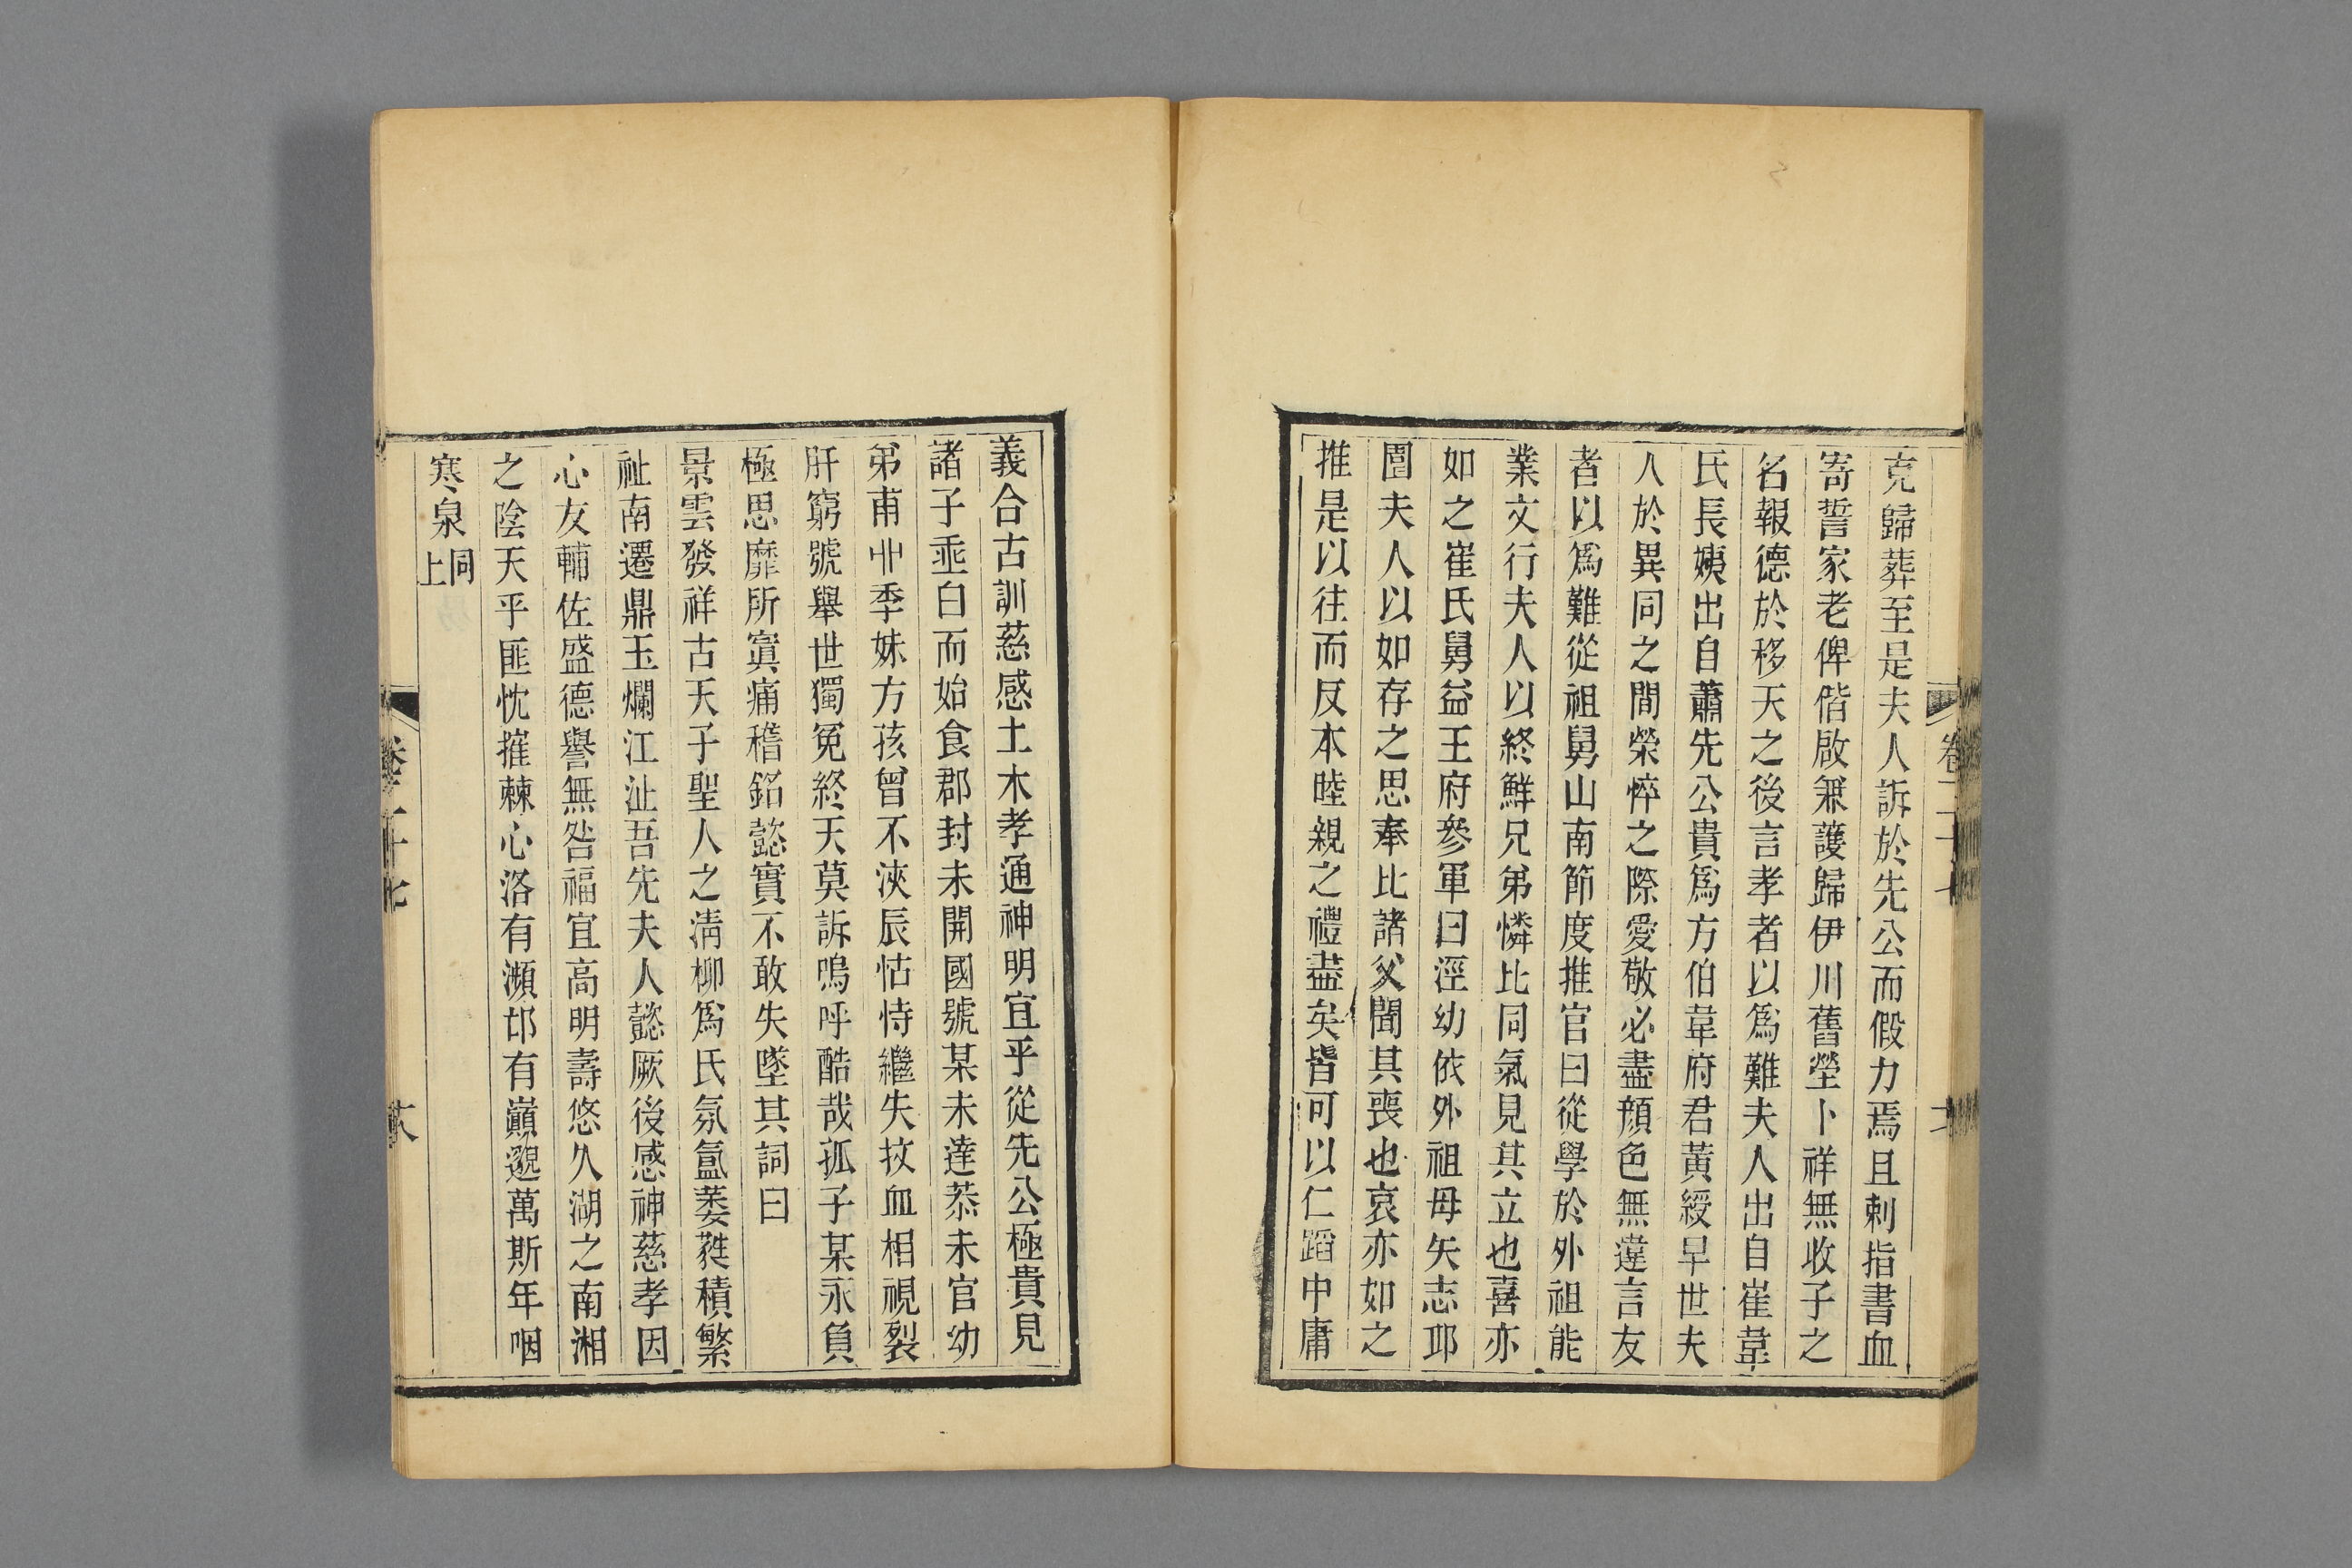 克歸葬至是夫人訴於先公而假力焉且刺指書血
寄誓家老俾偕啟兼護歸伊川舊塋卜祥無收子之
名報德於移天之後言孝者以爲難夫人出自崔韋
氏長姨出自蕭先公貴爲方伯韋府君黃綬早世夫
人於異同之間榮悴之際愛敬必盡顏色無違言友
者以爲難從祖舅山南節度推官曰從學於外祖能
業文行夫人以終鮮兄弟憐比同氣見其立也喜亦
如之崔氏舅益王府參軍曰涇幼依外祖母矢志邛
夫人以如存之思奉比諸父聞其喪也哀亦如之
推是以往而反本睦親之禮盡矣皆可以仁蹈中庸
義合古訓慈感土木孝通神明宜乎從先公極貴見
諸子垂白而始食郡封未開國號某未達恭未官幼
弟甫丱季妹方孩曾不浹辰怙恃繼失抆血相視裂
肝窮號舉世獨冤終天莫訴嗚呼酷哉孤子某永負
極思靡所寘痛稽銘懿實不敢失墜其詞曰
景雲發祥古天子聖人之清柳爲氏氛氳萎蕤積繁
祉南遷鼎玉爛江沚吾先夫人懿厥後感神慈孝因
心友輔佐盛德譽無咎福宜高明壽悠久湖之南湘
之陰天乎匪忱摧棘心洛有瀕邙有巔邈萬斯年咽
寒泉同上
卷二十七